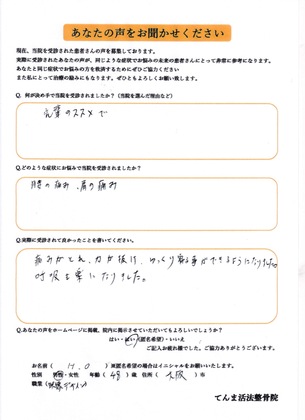 あなたの声をお聞かせください
現在、当院を受診された患者さんの声を募集しております。
実際に受診されたあなたの声が、同じような症状でお悩みの未来の患者さんにとって非常に参考になります。
あなたと同じ症状でお悩みの方を救済するためにぜひご協力ください
また私にとって治療の励みにもなります。ぜひともよろしくお願い致します。
Q. 何が決め手で当院を受診されましたか?(当院を選んだ理由など)
先輩のススメで
Q.どのような症状にお悩みで当院を受診されましたか?
腰の痛み、肩の痛み
Q.実際に受診されて良かったことを書いてください。
痛みがとれ、力が抜け、ゆっくり寝る事ができるようになりました。
呼吸も楽になりました。
Q.あなたの声をホームページに掲載、院内に掲示させていただいてもよろしいでしょうか?
はい・はい(匿名希望)・いいえ
ご記入お疲れ様でした。ご協力ありがとうございます。
お名前( H.O )※匿名希望の場合はイニシャルをお願いいたします。
性別 男性・女性 年齢(48)歳 住所(大阪)市
職業(デザイン)
てんま活法整骨院